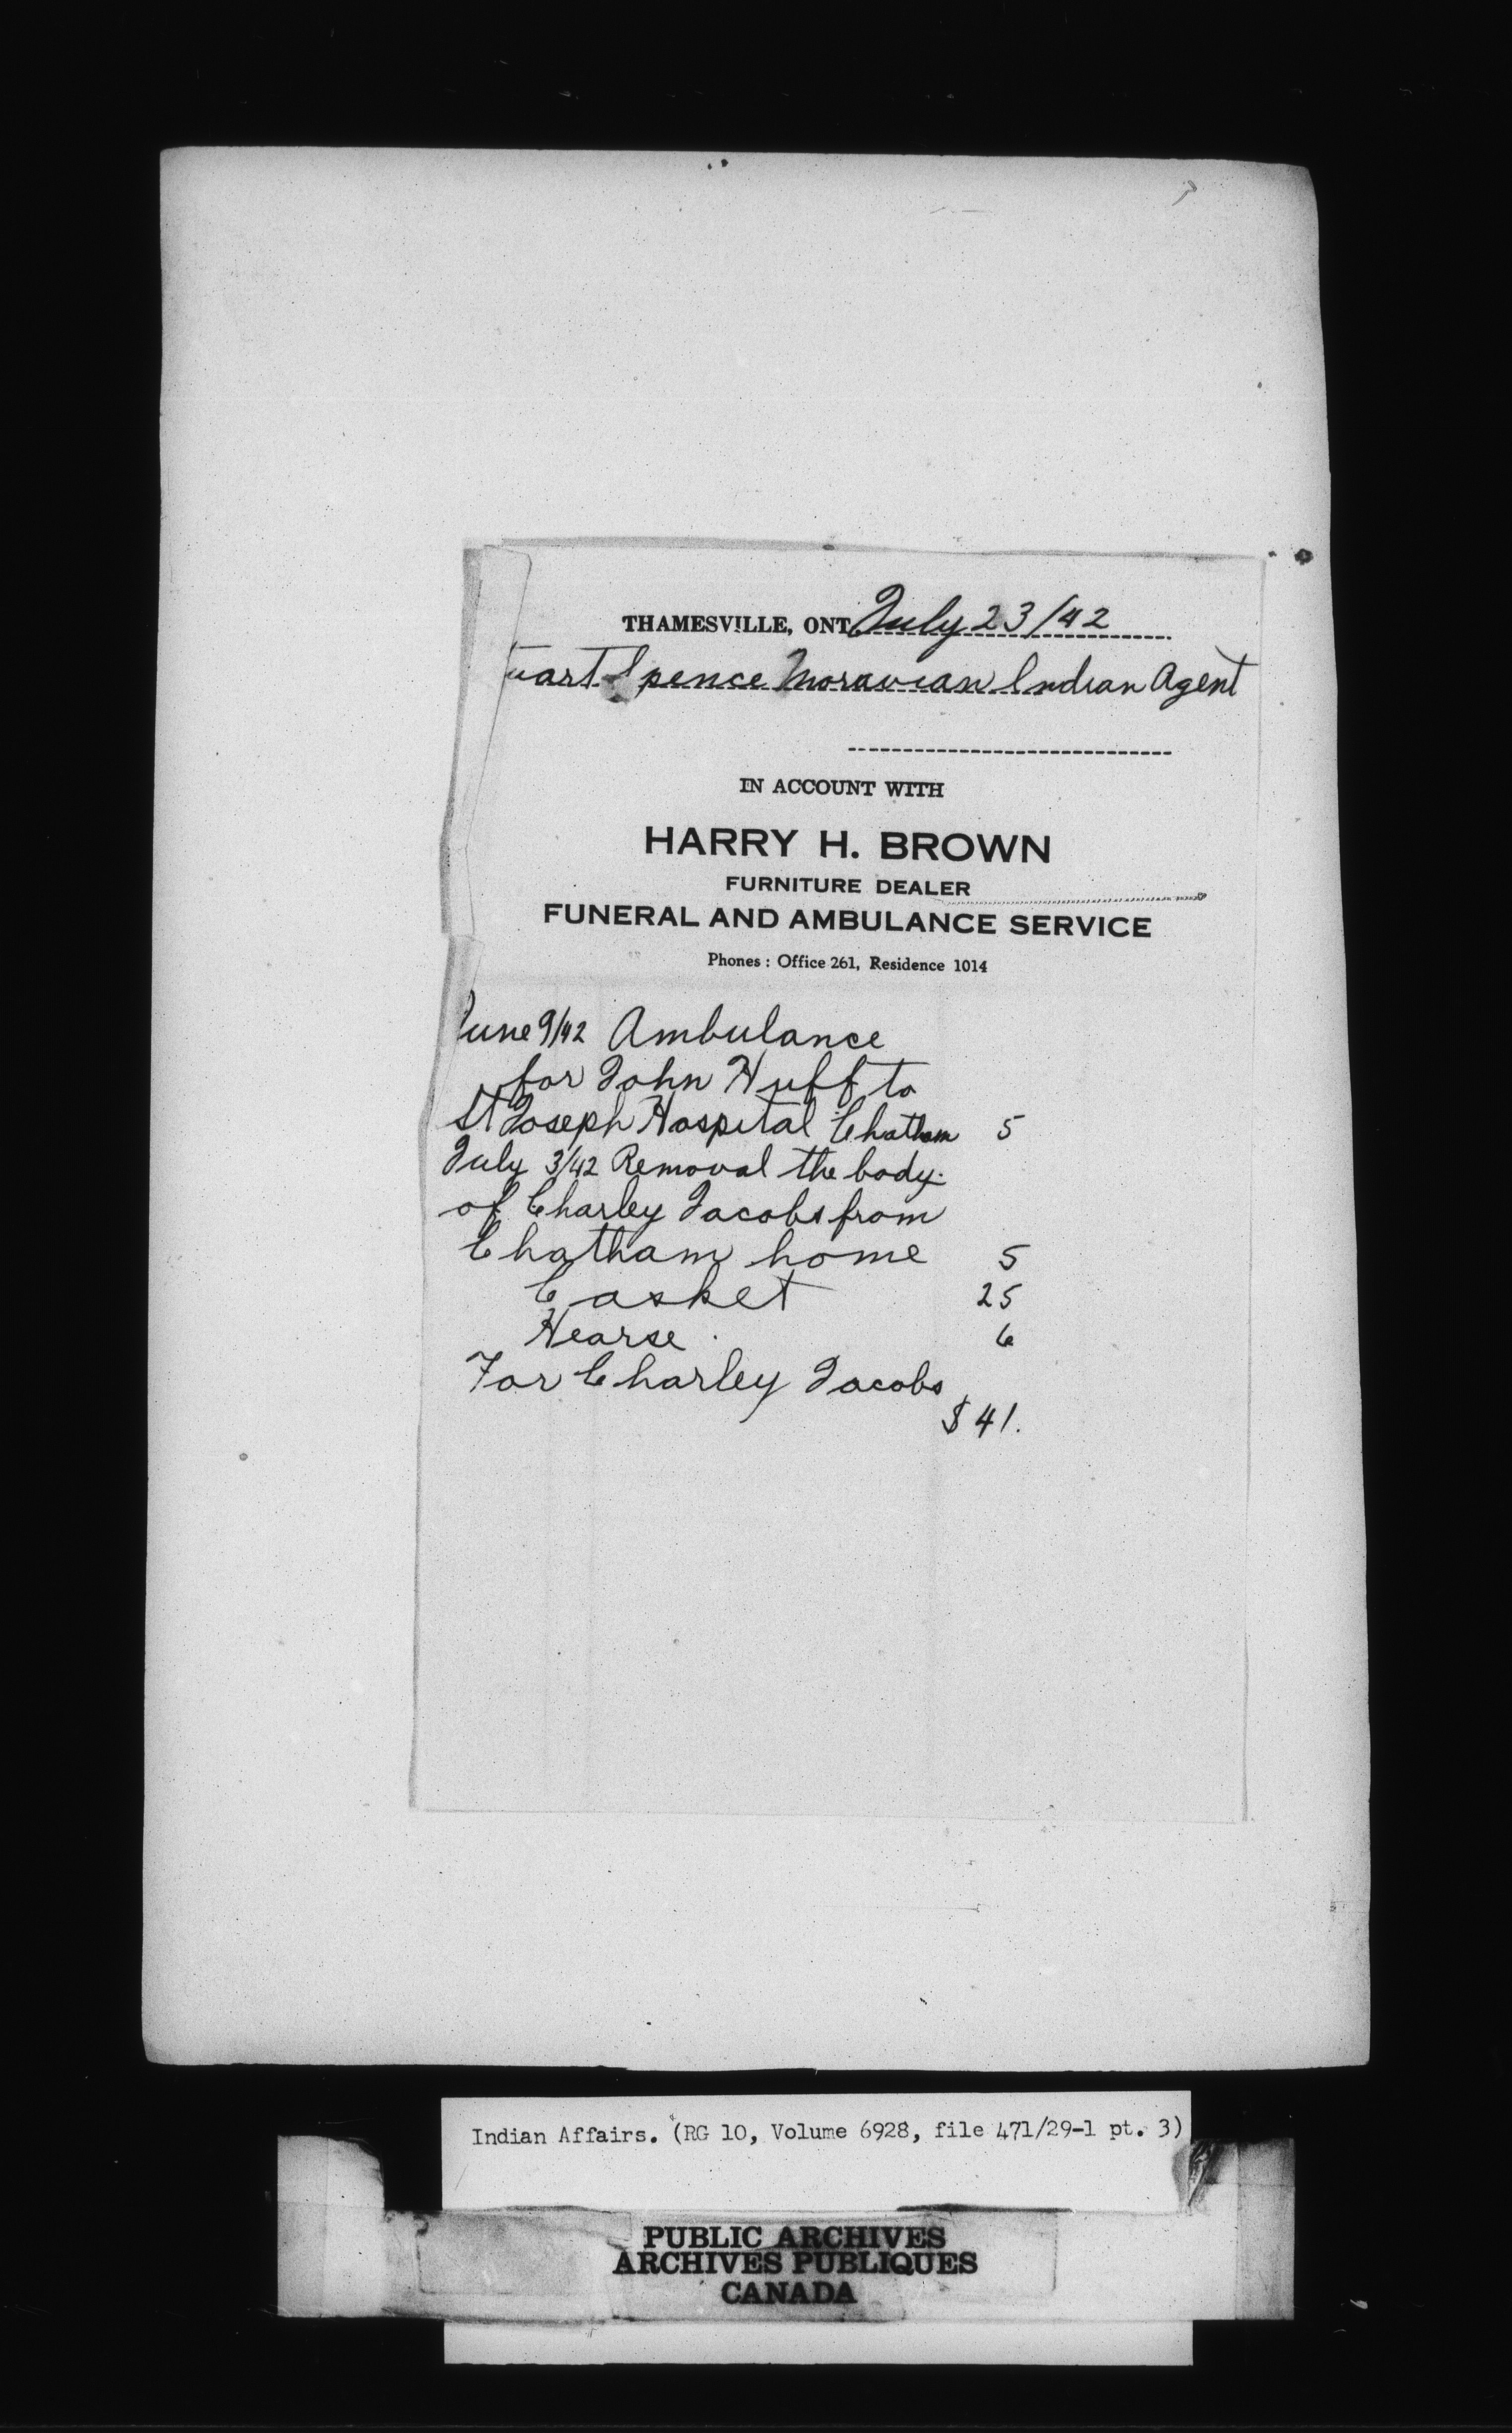 THAMESVILLE, ONT. July 23/42
uart Spence Moravian Indian Agent
IN ACCOUNT WITH
HARRY H. BROWN
FURNITURE DEALER
FUNERAL AND AMBULANCE SERVICE
Phones: Office 261, Residence 1014
June 9/42 Ambulance
for John Huff to
St Joseph Hospital Chatham 5
July 3/42 Removal the body
of Charley Jacobs from
Chatham home 5
Casket 25
Hearse 6
For Charley Jacobs
$ 41.
Indian Affairs. (RG 10, Volume 6928, file 471/29-1 pt. 3)
PUBLIC ARCHIVES
ARCHIVES PUBLIQUES
CANADA